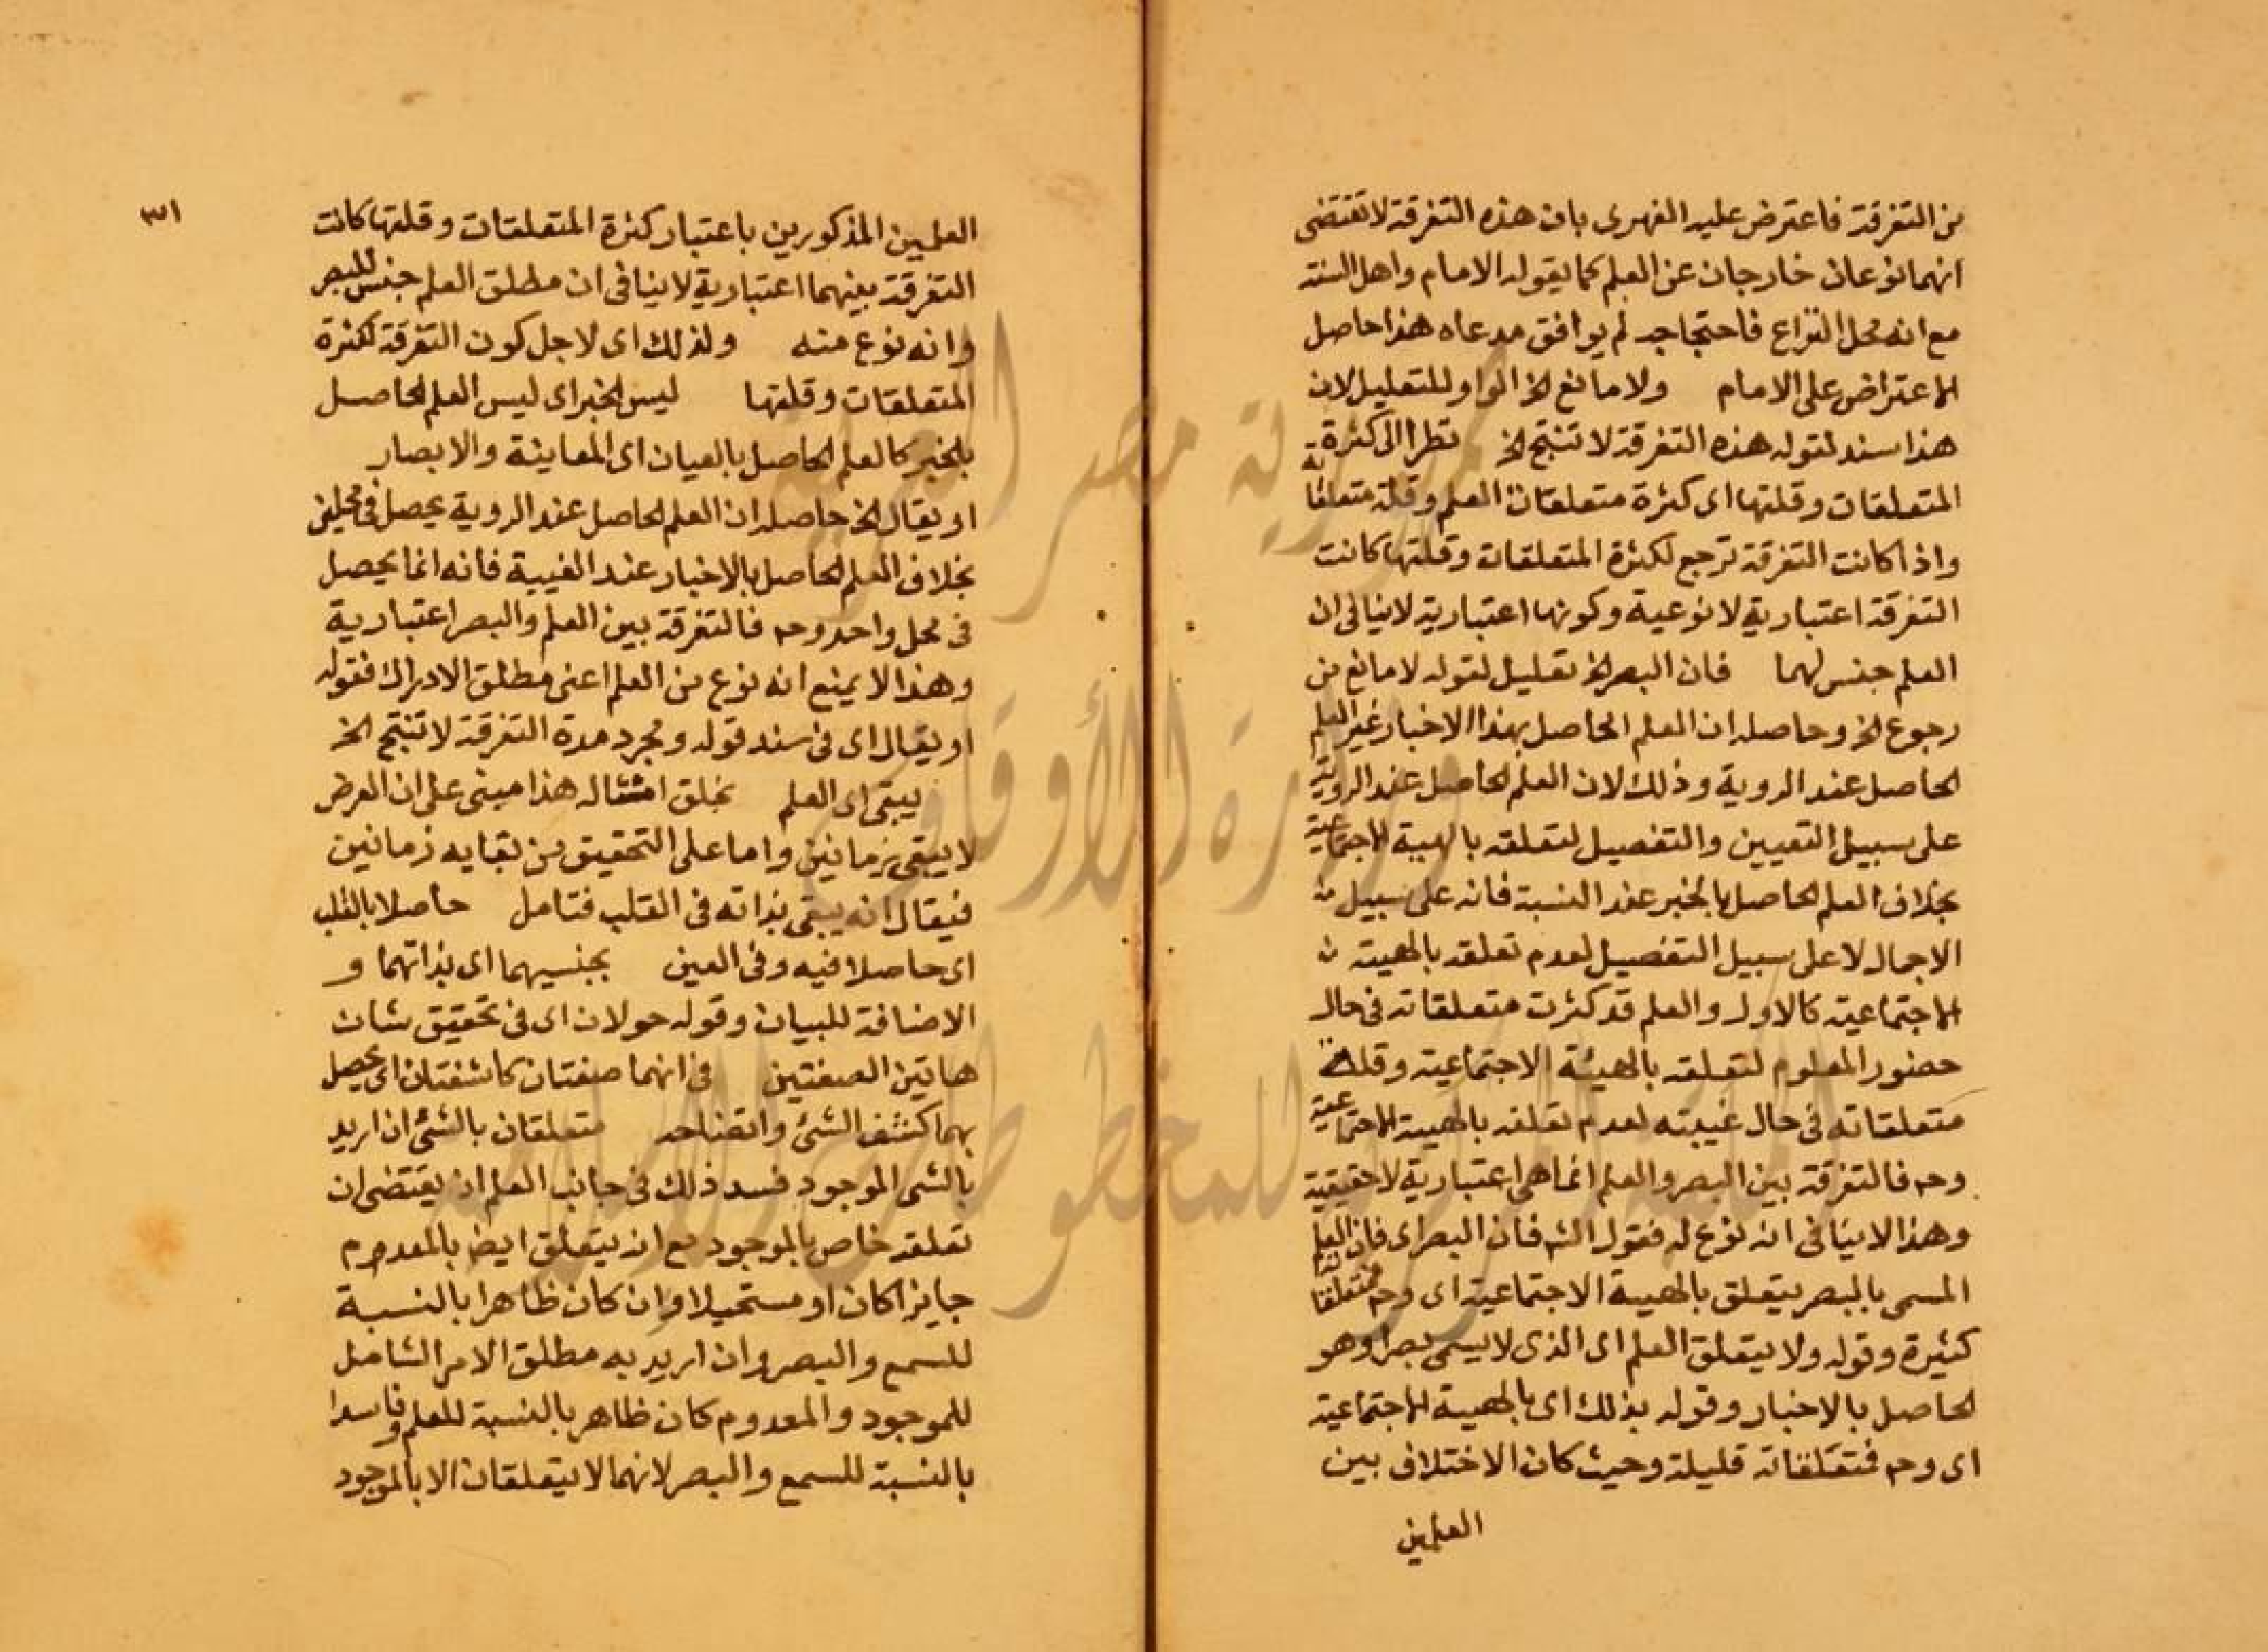 من التفرقة فاعترض عليه الفهرى بان هذه التفرقة لا تقتضى
انهما نوعان خارجان عن العلم كما يقوله الامام واهل السنة
مع انه محل النزاع فاحتجاجه لم يوافق مدعاه هذا حاصل
الاعتراض على الامام ولا مانع الخ الواو للتعليل لان
هذا سند لقوله هذه التفرقة لا تنتج الخ نظرا الى كثرة
المتعلقات وقلتها اى كثرة متعلقات العلم وقلة متعلقاته
واذا كانت التفرقة ترجع لكثرة المتعلقات وقلتها كانت
التفرقة اعتبارية لا نوعية وكونها اعتبارية لا ينافى ان
العلم جنس لهما فان البصر الخ تعليل لقوله لا مانع من
رجوع الخ وحاصله ان العلم الحاصل بهذا الاخبار غير العلم
الحاصل عند الروية وذلك لان العلم الحاصل عند الروية
على سبيل التعيين والتفصيل لتعلقه بالهيية الاجتماعية
بخلاف العلم الحاصل بالخبر عند النسبة فانه على سبيل
الاجمال لا على سبيل التفصيل لعدم تعلقه بالهيية
الاجتماعية كالاول والعلم قد كثرت متعلقاته فى حال
حضور المعلوم لتعلقه بالهيئة الاجتماعية وقلة
متعلقاته فى حال غيبته لعدم تعلقه بالهيية الاجتماعية
وحـ فالتفرقة بين البصر والعلم انما هى اعتبارية لا حقيقية
وهذا لا ينافى انه نوع له فقول الشـ فان البصر اى فان العلم
المسمى بالبصر يتعلق بالهيية الاجتماعية اى وحـ متعلقاته
كثيرة وقوله ولا يتعلق العلم اى الذى لا يسمى بصرا وهو
الحاصل بالاخبار وقوله بذلك اى بالهيية الاجتماعية
اى وحـ فمتعلقاته قليلة وحيث كان الاختلاف بين
العلمين
٣١
العلمين المذكورين باعتبار كثرة المتعلقات وقلتها كانت
التفرقة بينهما اعتبارية لا ينافى ان مطلق العلم جنس للبصر
وانه نوع منه ولذلك اى لاجل كون التفرقة لكثرة
المتعلقات وقلتها ليس الخبر اى ليس العلم الحاصل
بالخبر كالعلم الحاصل بالعيان اى المعاينة والابصار
او يقال الخ حاصله ان العلم الحاصل عند الروية يحصل فى محلين
بخلاف العلم الحاصل بالاخبار عند الغيبية فانه انما يحصل
فى محل واحد وحـ فالتفرقة بين العلم والبصر اعتبارية
وهذا لا يمنع انه نوع من العلم اعنى مطلق الادراك فقوله
او يقال اى فى سند قوله ومجرد مدة التفرقة لا تنتج الخ
يبقى اى العلم بخلق امثاله هذا مبنى على ان العرض
لا يبقى زمانين واما على التحقيق من بقايه زمانين
فيقال انه يبقى بذاته فى القلب فتامل حاصلا بالقلب
اى حاصلا فيه وفى العين بجنسيهما اى بذاتهما و
الاضافة للبيان وقوله حولان اى فى تحقيق شان
هاتين الصفتين فى انهما صفتان كاشفتان اى يحصل
بهما كشف الشئ واتضاحه متعلقان بالشئ ان اريد
بالشى الموجود فسد ذلك فى جانب العلم اذ يقتضى ان
تعلقه خاص بالموجود مع انه يتعلق ايضا بالمعدوم
جايزا كان او مستحيلا وان كان ظاهرا بالنسبة
للسمع والبصر وان اريد به مطلق الامر الشامل
للموجود والمعدوم كان ظاهر بالنسبة للعلم وفاسدا
بالنسبة للسمع والبصر لانهما لا يتعلقان الا بالموجود